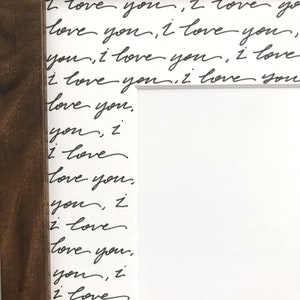 i love you, i love you,
love you, i love you, i
you, i love you, i love
i love you, i love you
love you,
you, i
i love
love you,
you, i
i love
love you,
you, i
i love